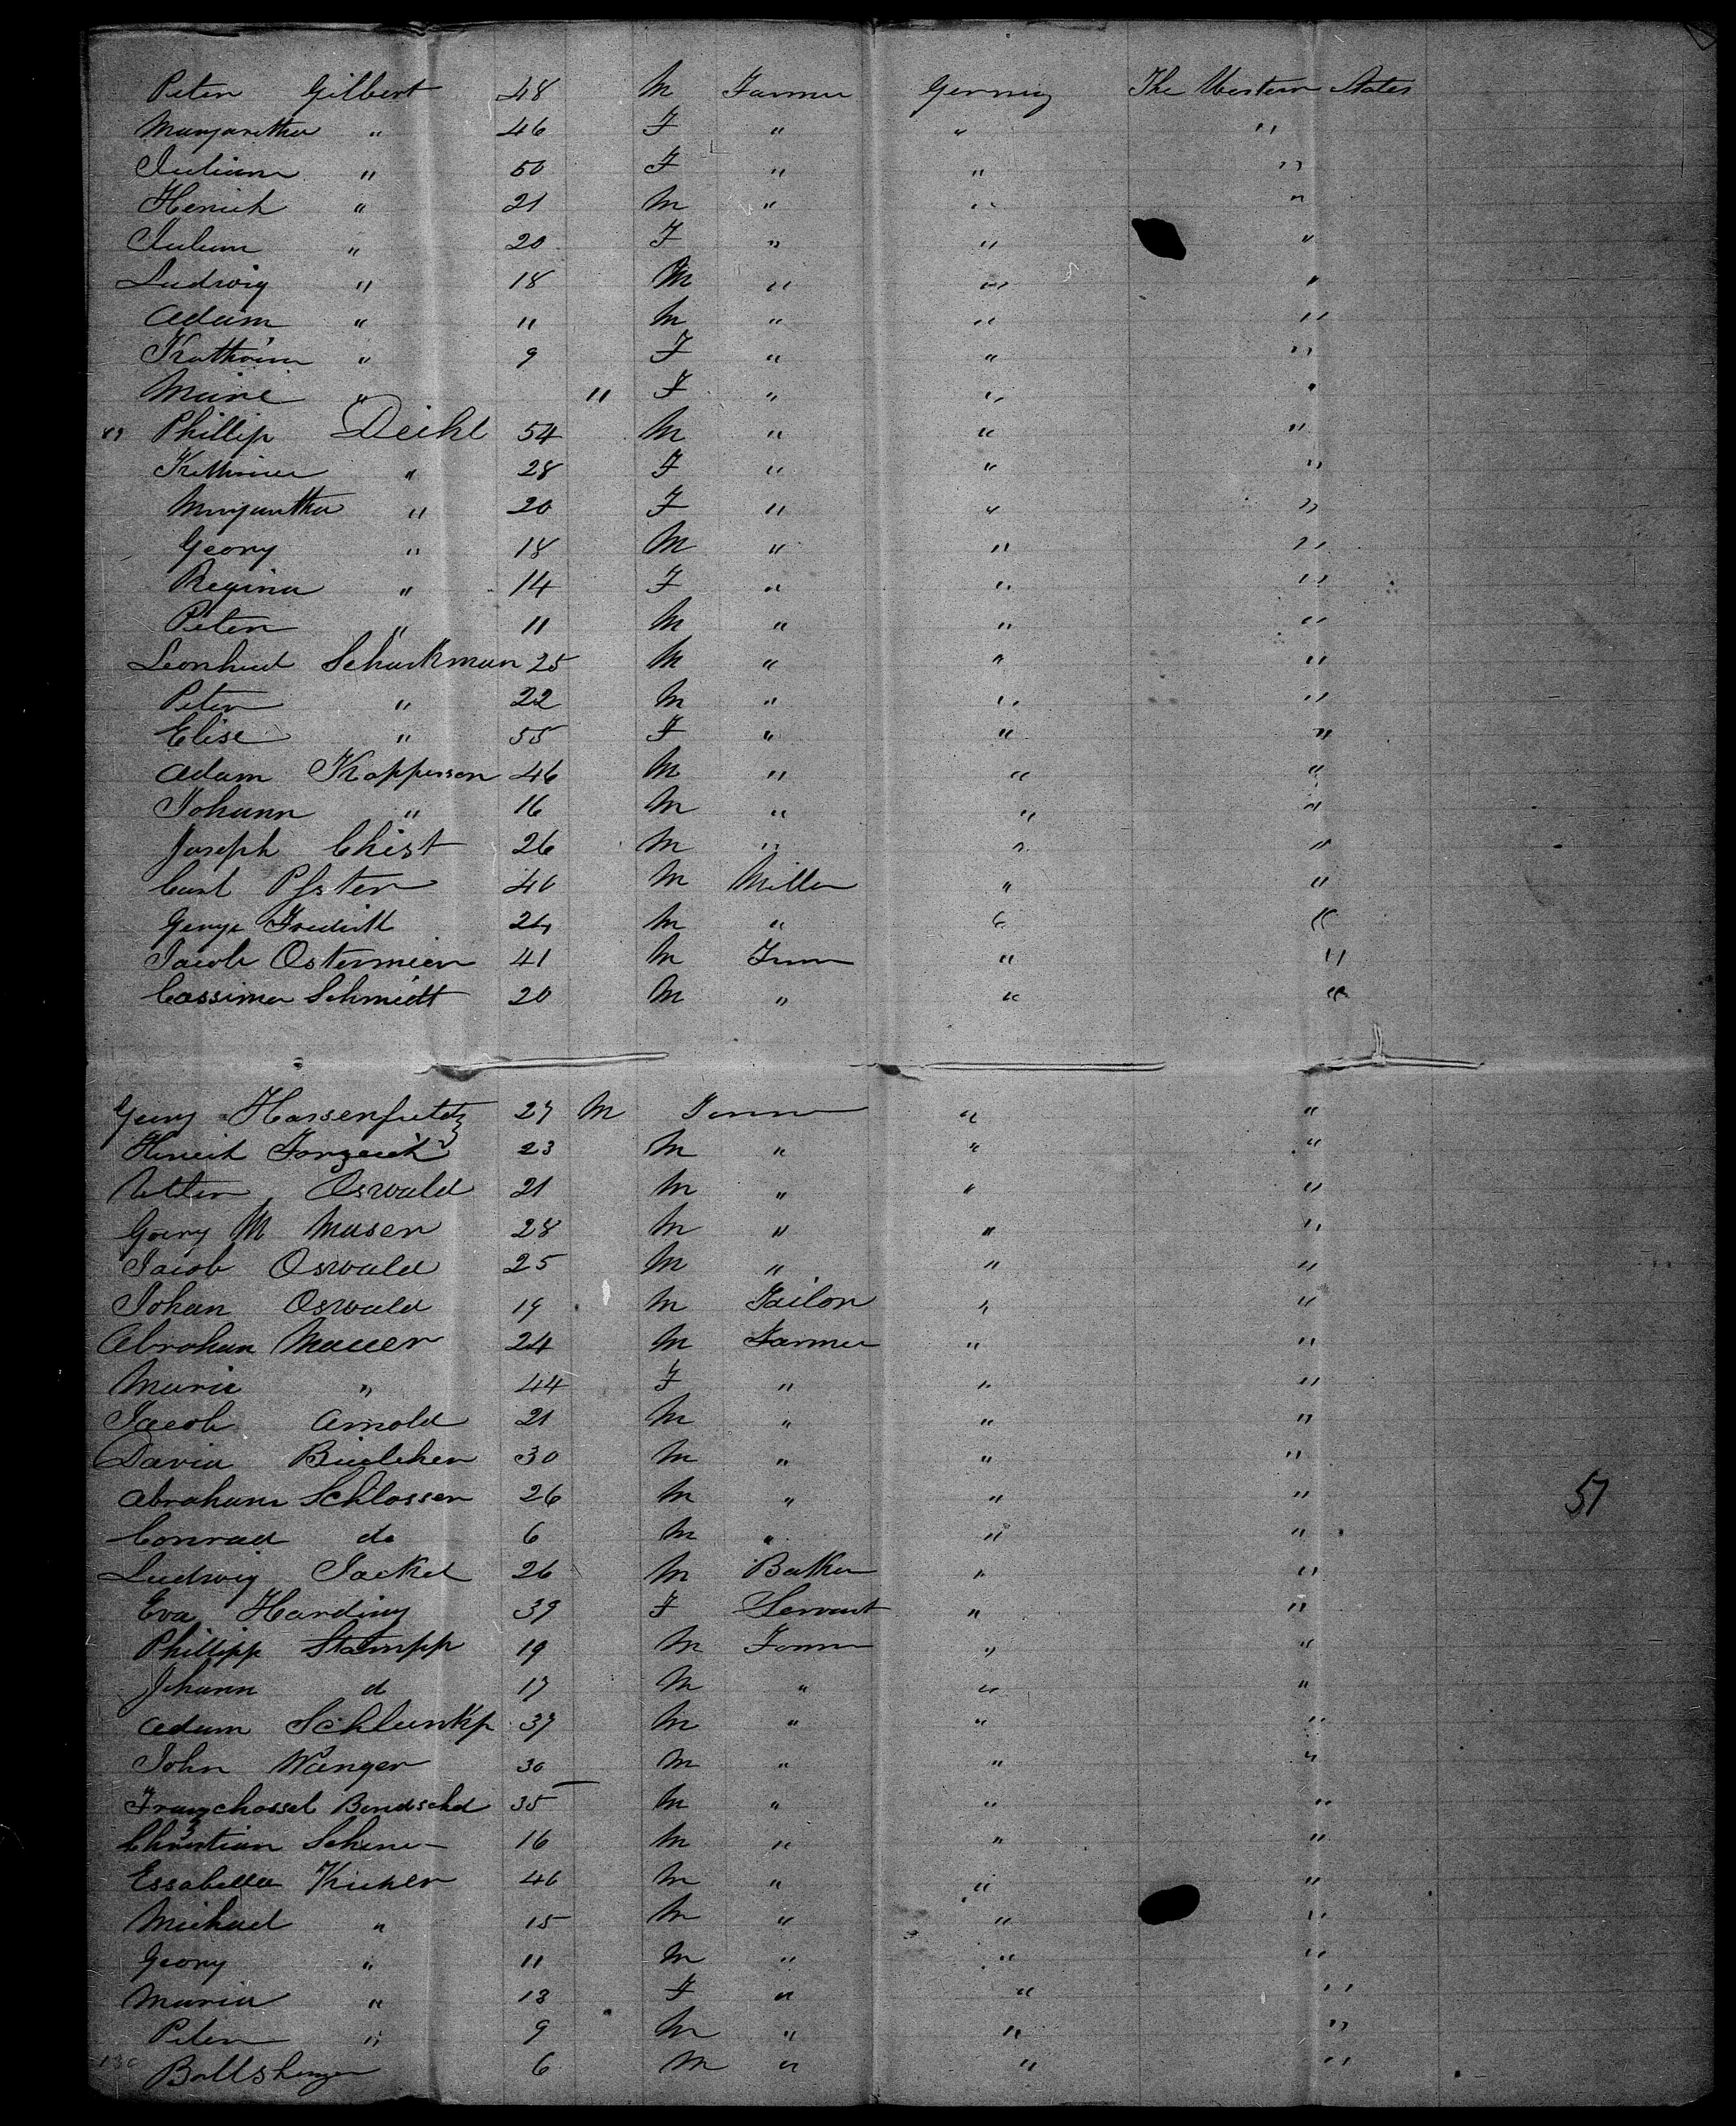 Peter Gilbert 48 M Farmer Germny The Western States
Margaretha " 46 F " " "
Juliana " 50 F " " "
Henrich " 21 M " " "
" 20 F " " "
Ludwig " 18 M " " "
Adam " 11 M " " "
Kathrina " 9 F " " "
Marie " 11 F " " "
Phillip Deihl 54 M " " "
" 28 F " " "
Margaretha " 20 F " " "
Georg " 18 M " " "
Regina " 14 F " " "
Peter " 11 M " " "
Leonhard Schackman 25 M " " "
Peter " 22 M " " "
Elise " 55 F " " "
Adam Kopperson 46 M " " "
Johann " 16 M " " "
Joseph Chist 26 M " " "
Carl Pfster 40 M Miller " "
George 24 M " " "
Jacob Ostermeier 41 M " "
Cassimer Schmidt 20 M " " "
Georg 27 M Farmer " "
Henrich 23 M " " "
Oswald 21 M " " "
Georg M Maser 28 M " " "
Jacob Oswald 25 M " " "
Johan Oswald 19 M Tailor " "
Abraham Mauer 24 M Farmer " "
Marie " 44 F " " "
Jacob Arnold 21 M " " "
David 30 M " " "
Abraham Schlosser 26 M " " " 57
Conrad do 6 M " " "
Ludwig Jackel 26 M Baker " "
Eva Harding 39 F Servant " "
Phillipp Stampp 19 M Farmer " "
Johann d 17 M " " "
Adam Schlunkp 37 M " " "
John Wanger 30 M " " "
35 M " " "
Christian 16 M " " "
Essabella Kicher 46 M " " "
Michael " 15 M " " "
Georg " 11 M " " "
Maria " 13 F " " "
Peter " 9 M " " "
130 6 M " " "